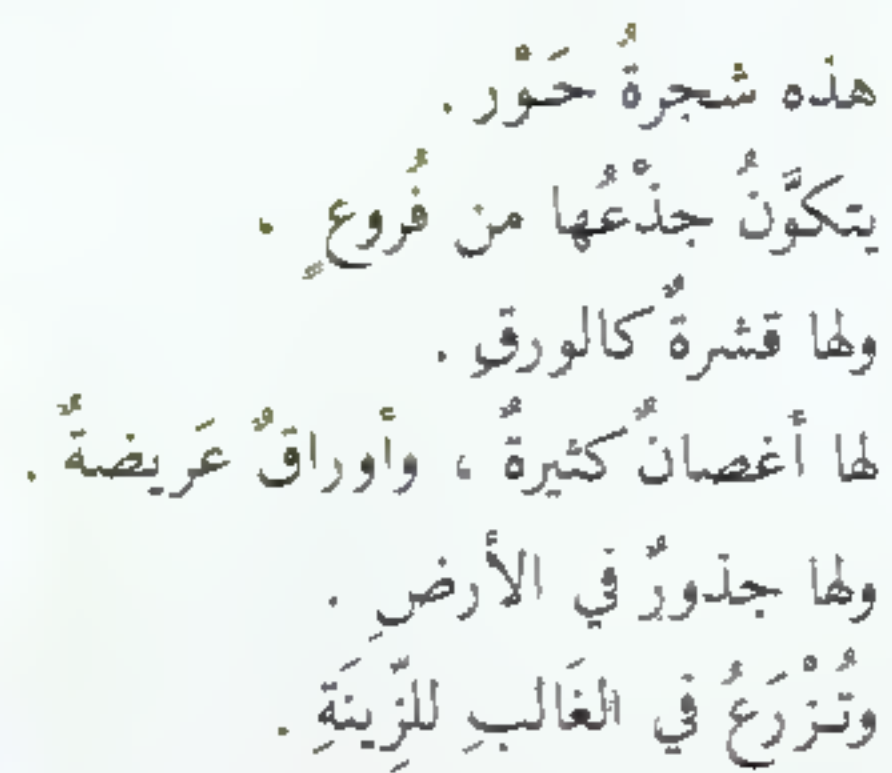 هذه شجرةُ حَوْر .
يتكوَّنُ جذْعُها من فُروعٍ .
ولها قشرةٌ كالورقِ .
لها أغصانٌ كثيرةٌ ، وأوراقٌ عَريضةٌ .
ولها جذورٌ في الأرضِ .
وتُزْرَعُ في الغَالبِ للزِّينَةِ .